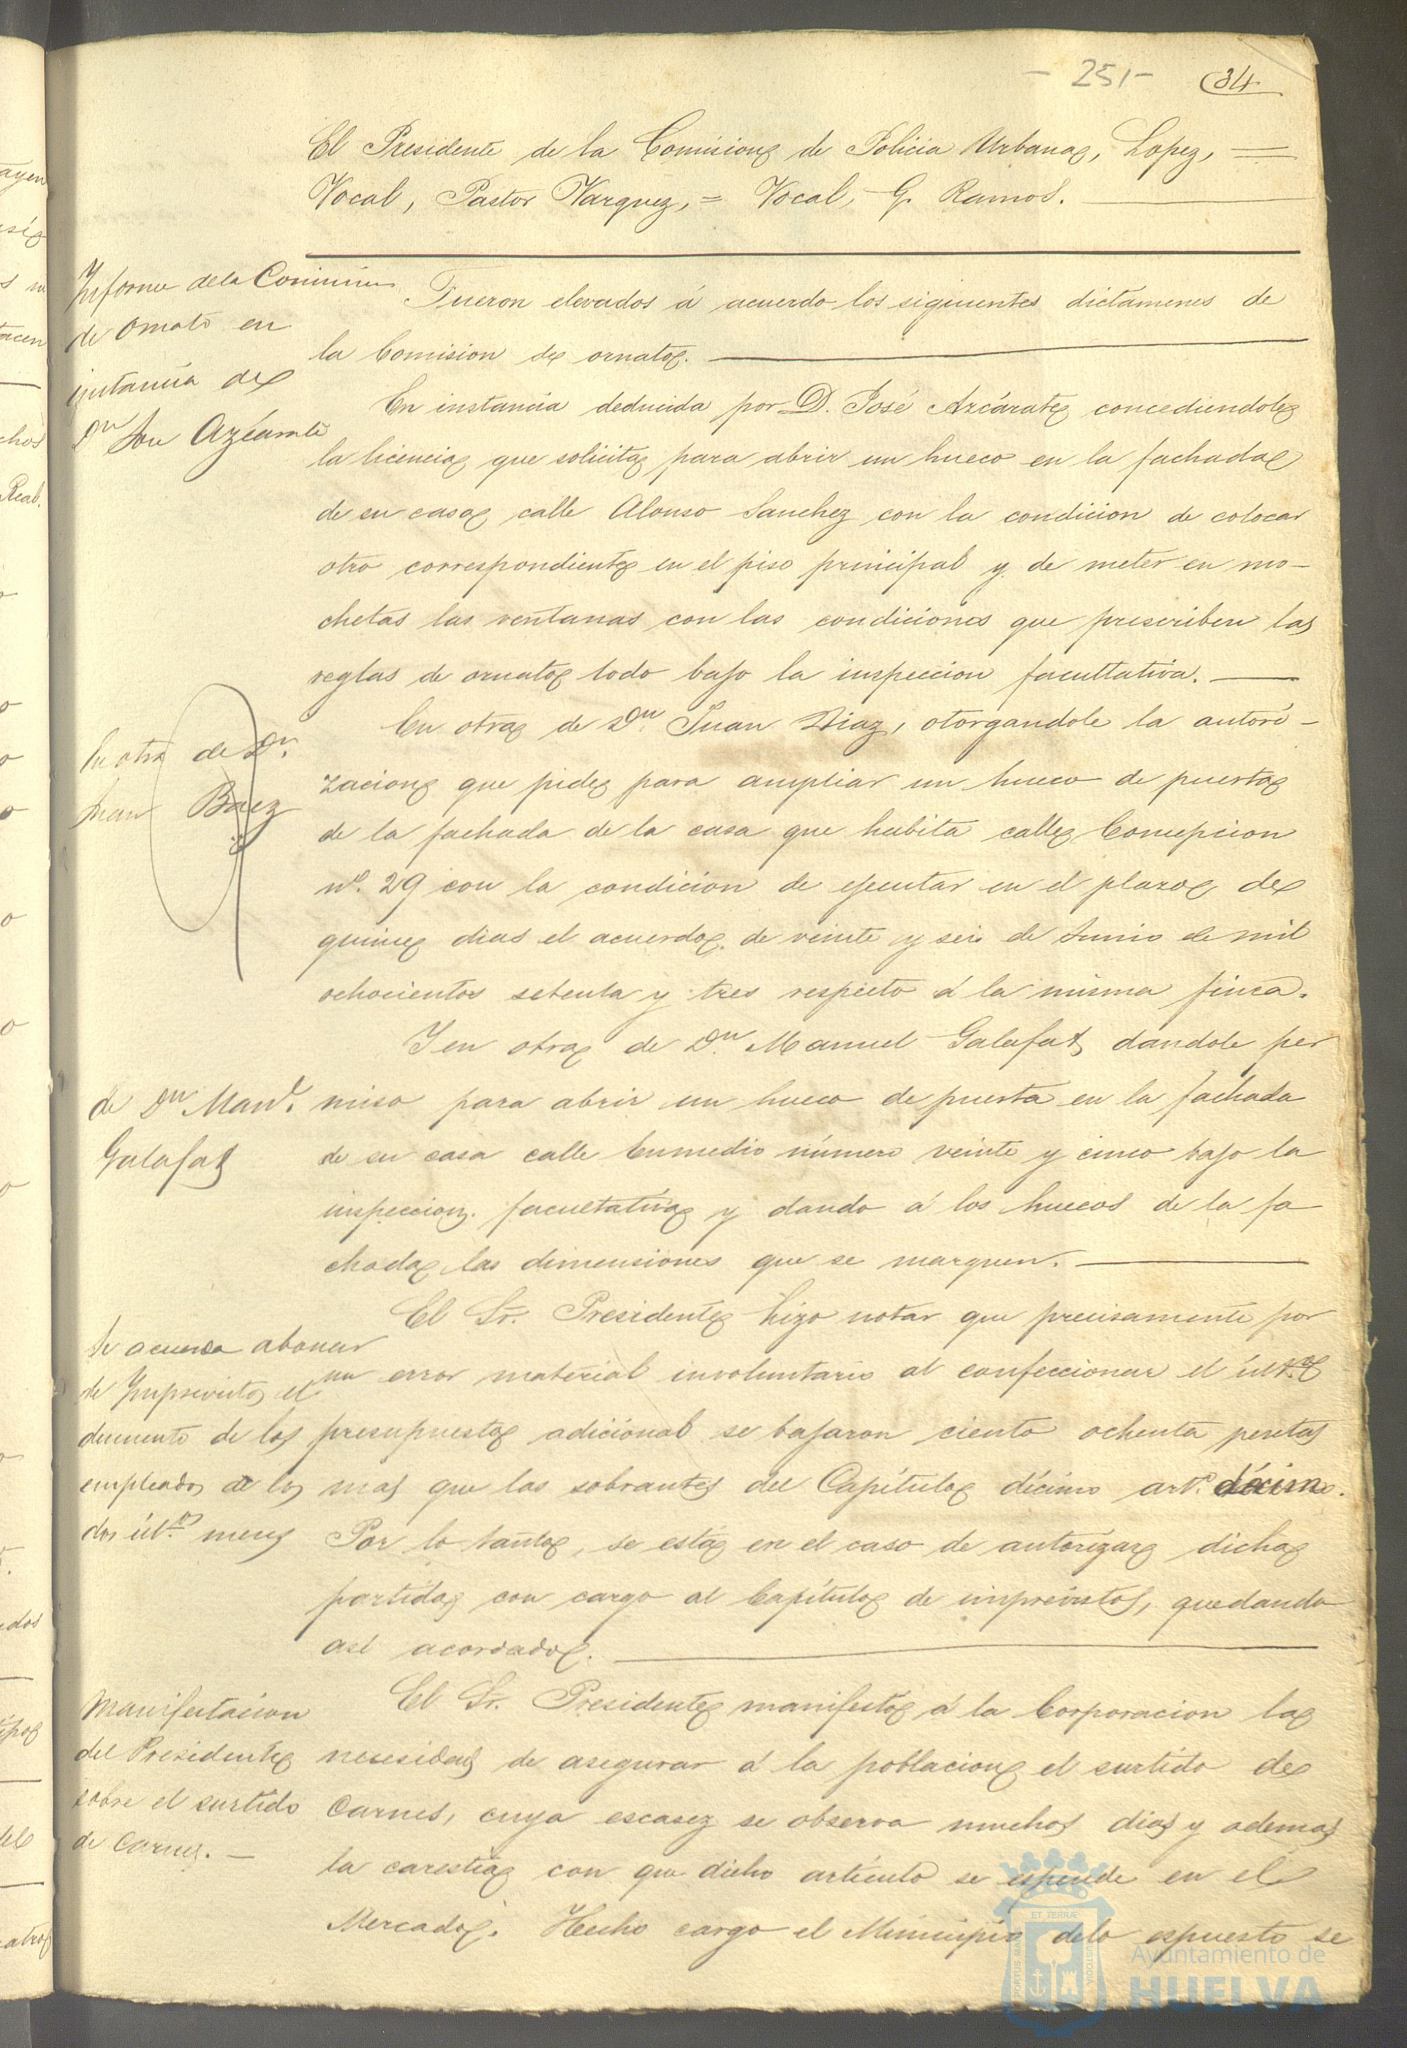 - 251 -
34
El Presidente de la Comision de Policia Urbana, Lopez, =
Vocal, Pastor Vazquez, = Vocal, G. Ramos.
Informe de la Comision
de Ornato en
instancia de
Dn Jose Azcarate
Fueron elevados á acuerdo los siguientes dictámenes de
la Comision de ornato.
En instancia deducida por D. José Azcárate concediendole
la licencia que solicita para abrir un hueco en la fachada
de su casa calle Alonso Sanchez con la condicion de colocar
otro correspondiente en el piso principal y de meter en mo-
chetas las ventanas con las condiciones que prescriben las
reglas de ornato todo bajo la inspeccion facultativa.
En otra de Dn.
Juan Baez
En otra de Dn. Juan Diaz, otorgandole la autori-
zacion que pide para ampliar un hueco de puerta
de la fachada de la casa que habita calle Concepcion
nº. 29 con la condicion de ejecutar en el plazo de
quince dias el acuerdo de veinte y seis de Junio de mil
ochocientos setenta y tres respecto á la misma finca.
de Dn Manl.
Galafat
Y en otra de Dn. Manuel Galafat dandole per
miso para abrir un hueco de puerta en la fachada
de su casa calle Enmedio número veinte y cinco bajo la
inspeccion facultativa y dando á los huecos de la fa
chada las dimensiones que se marquen.
Se acuerda abonar
de Imprevistos el
descuento de los
empleados de los
dos últos meses
El Sr. Presidente hizo notar que precisamente por
un error material involuntario al confeccionar el últo
presupuesto adicional se bajaron ciento ochenta pesetas
mas que las sobrantes del Capítulo décimo artº. décimo.
Por lo tanto, se está en el caso de autorizar dicha
partida con cargo al Capítulo de imprevistos, quedando
asi acordado.
Manifestacion
del Presidente
sobre el surtido
de Carnes. -
El Sr. Presidente manifestó á la Corporacion la
necesidad de asegurar á la poblacion el surtido de
Carnes, cuya escasez se observa muchos dias y ademas
la carestia con que dicho artículo se espende en el
Mercado. Hecho cargo el Municipio delo espuesto se
ET TERRAE
PORTUS MARIS
CUSTODIA
Ayuntamiento de
HUELVA